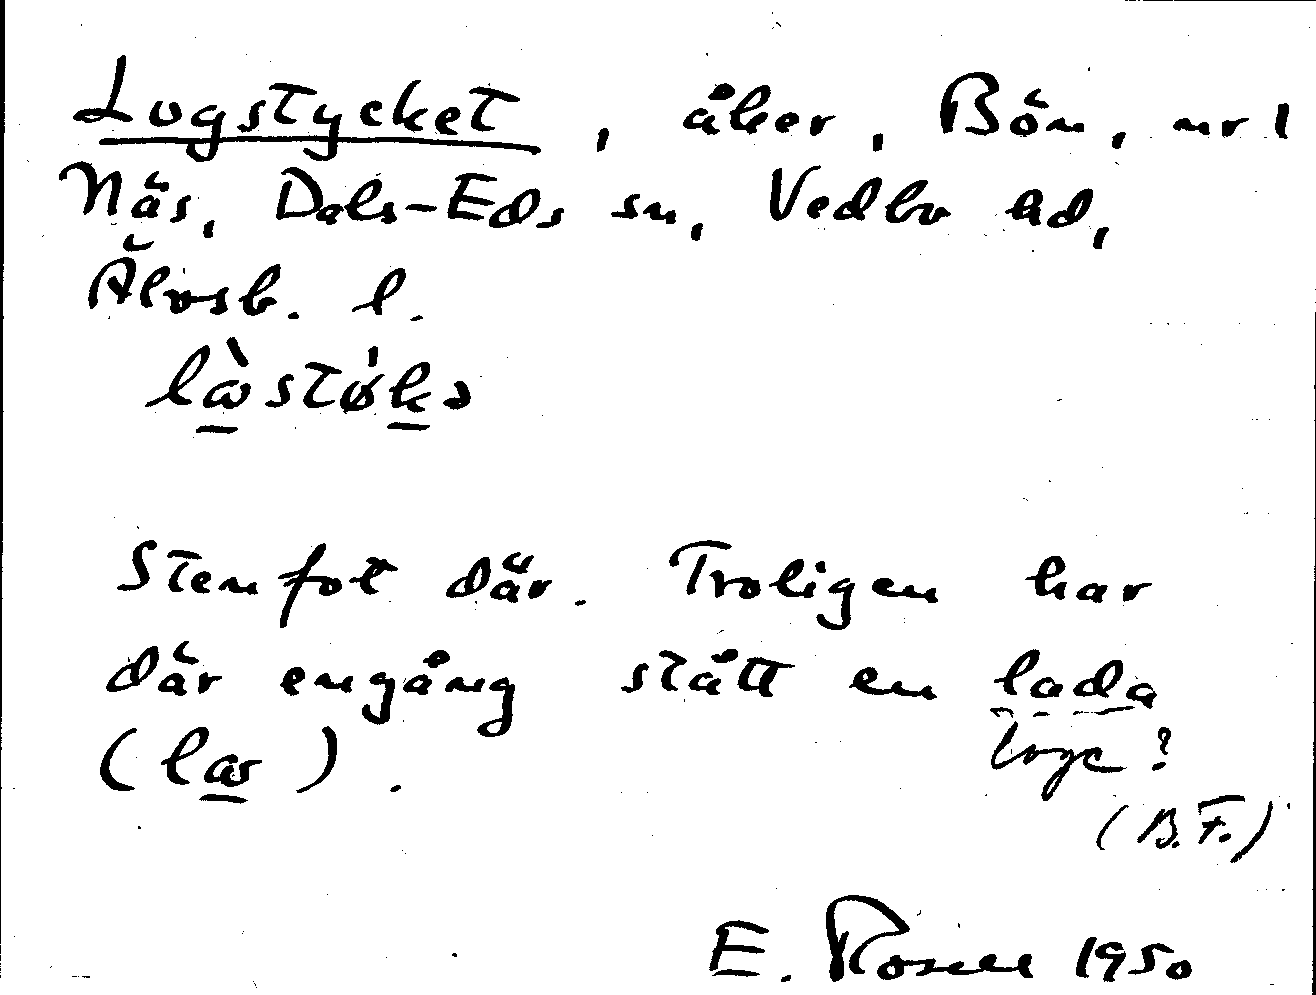 Logstycket, åker, Bön, nr 1
Näs, Dals-Eds sn, Vedbo hd,
Älvsb. l.
Stenfot där. Troligen har
där engång stått en lada
loge?
(B.F.)
E. Rosell 1950